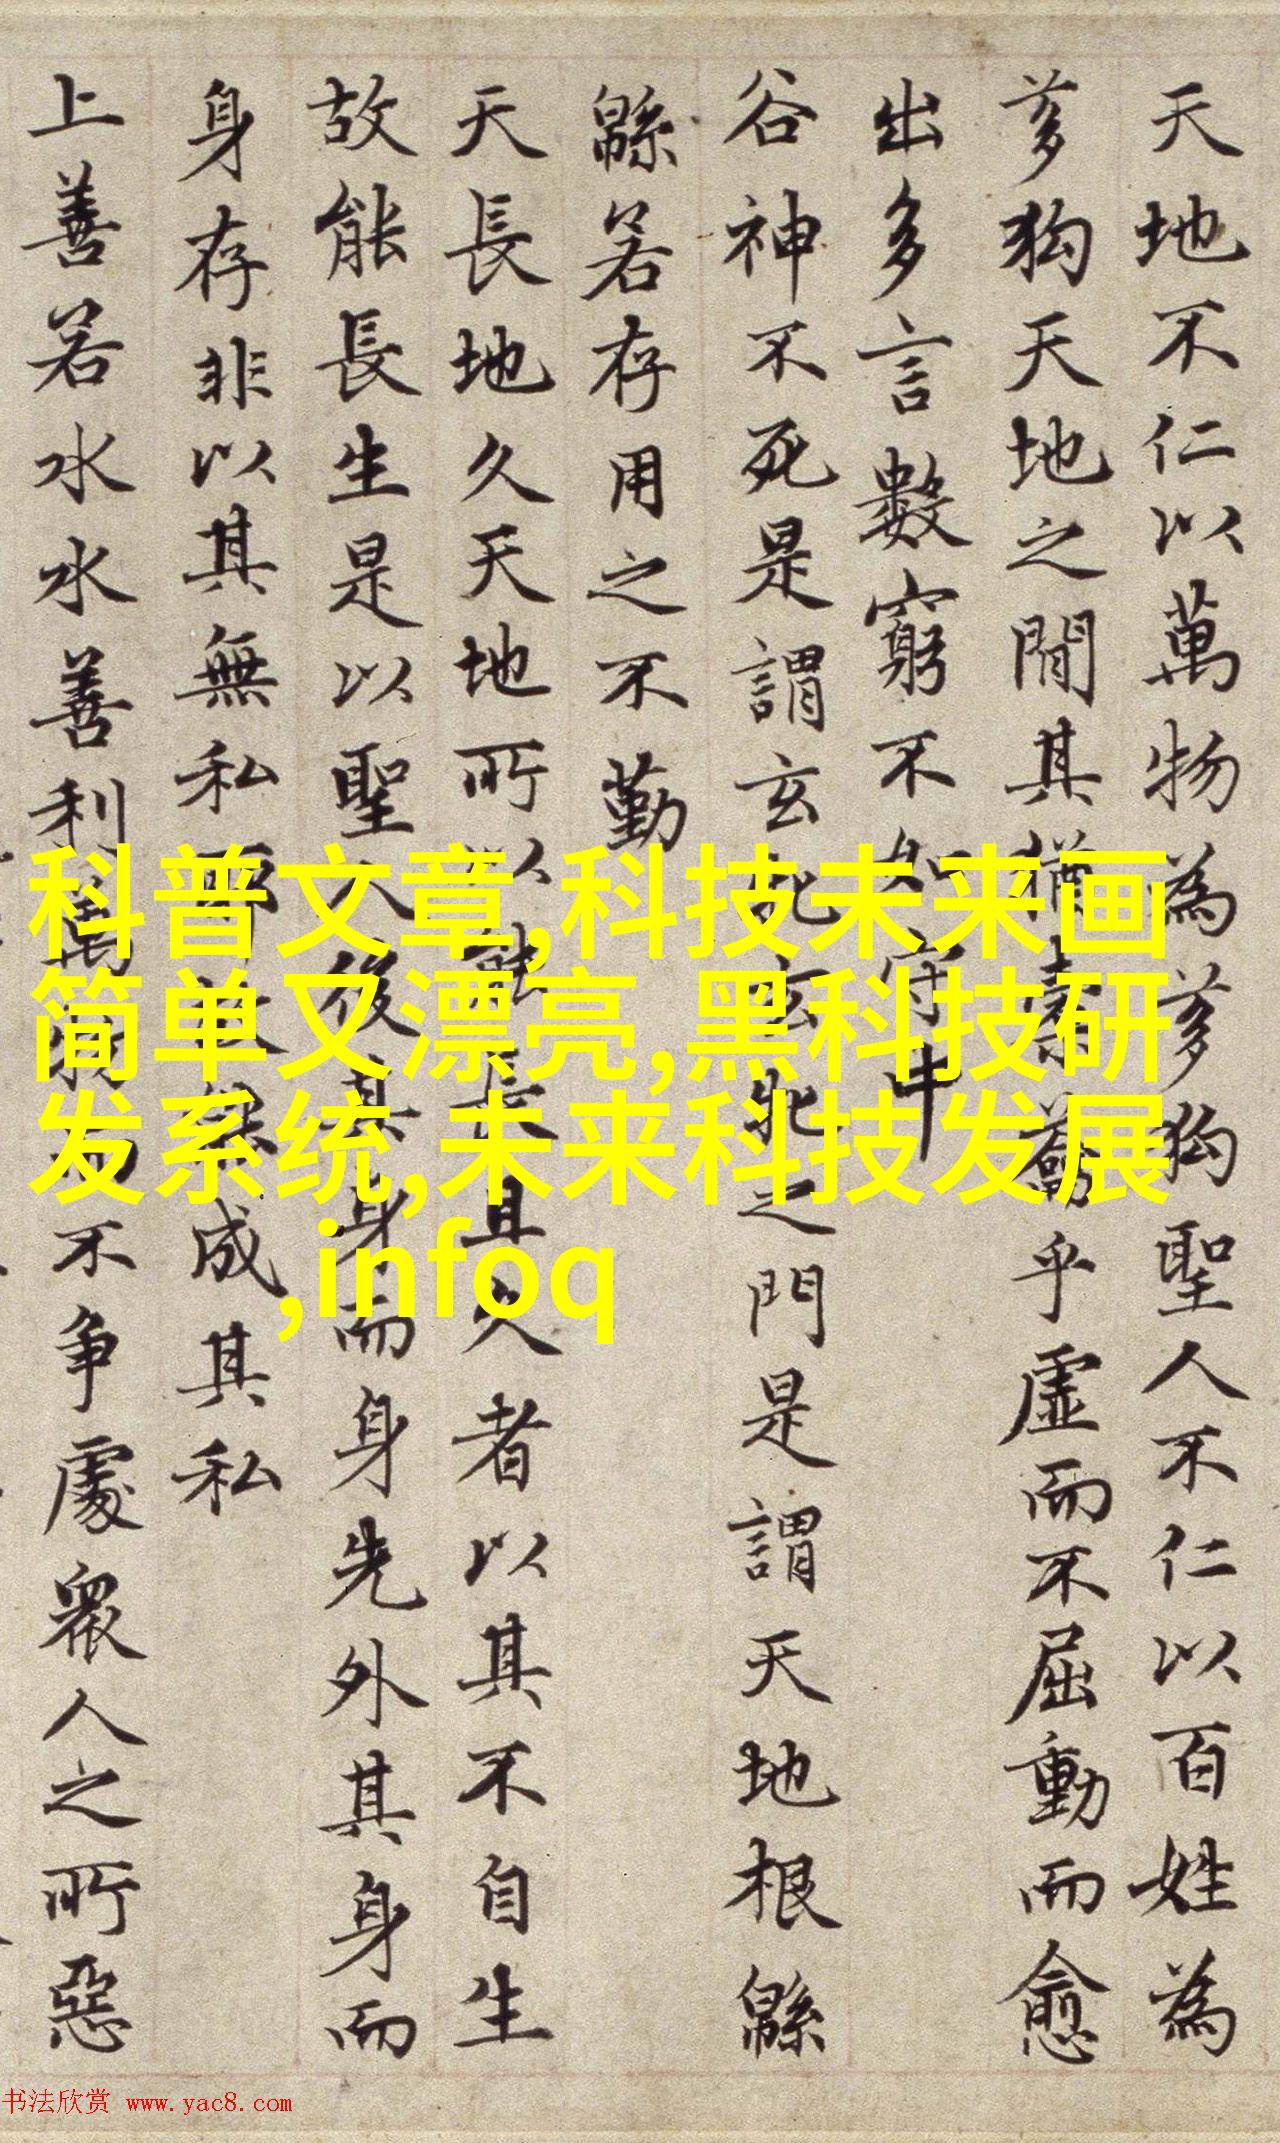 天地不仁以萬物為芻狗聖人不仁以百姓為
芻狗天地之間其猶橐籥乎虛而不屈動而愈
出多言數窮不如守中
谷神不死是謂玄牝玄牝之門是謂天地根緜
緜若存用之不勤
天長地久天地所以能長且久者以其不自生
故能長生是以聖人後其身而身先外其身而
身存非以其無私耶故能成其私
上善若水水善利萬物而不争處衆人之所惡
科普文章,科技未来画
简单又漂亮,黑科技研
发系统,未来科技发展
,infoq
书法欣赏 www.yac8.com